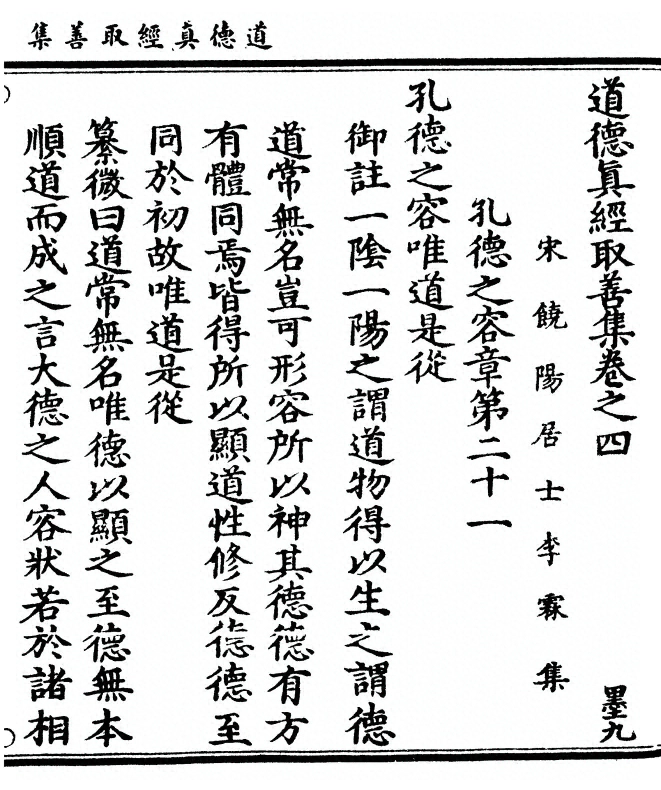 道德真經取善集
道德眞經取善集卷之四 墨九
宋饒陽居士李霖集
孔德之容章第二十一
孔德之容唯道是從
御註一陰一陽之謂道物得以生之謂德
道常無名豈可形容所以神其德德有方
有體同焉皆得所以顯道性修反德德至
同於初故唯道是從
纂微曰道常無名唯德以顯之至德無本
順道而成之言大德之人容狀若於諸相